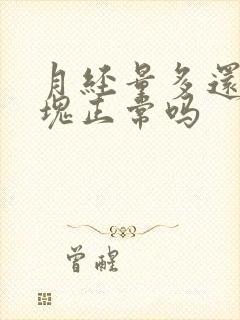 月經量多還
塊正常吗
曾醒